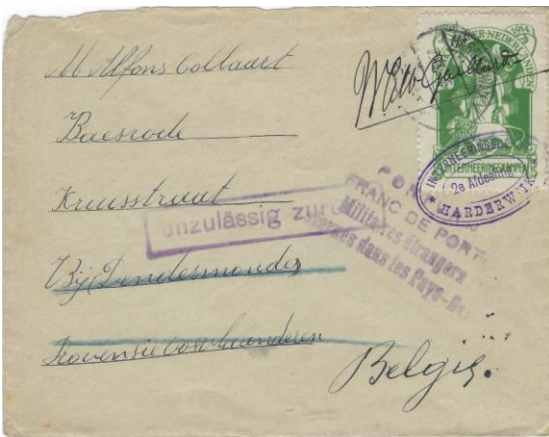 M Alfons Collaert
Baesrode
Kruisstraat
Bij Dendermonde
Provensie oostvlaanderen
Belgïe.
unzulässig zur
FRANC DE PORT
Militaires étrangers
dans les Pays-B
INTERNEERINGSKAMPEN
INTERNEERINGS
2e Afdeeling
* HARDERWIJK